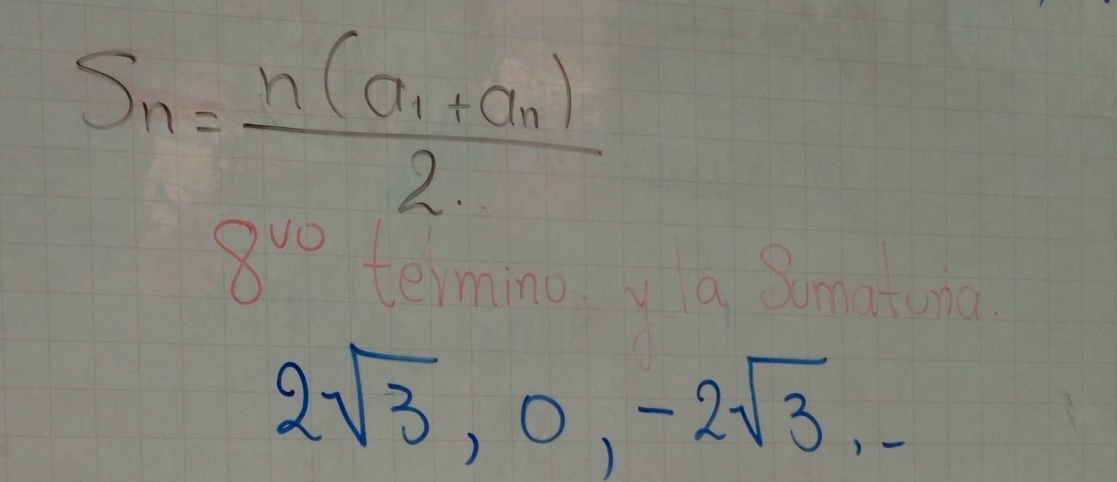 Sn = n(a₁ + an) / 2.
8vo termino. y la Sumatoria.
2√3, 0, -2√3, .-